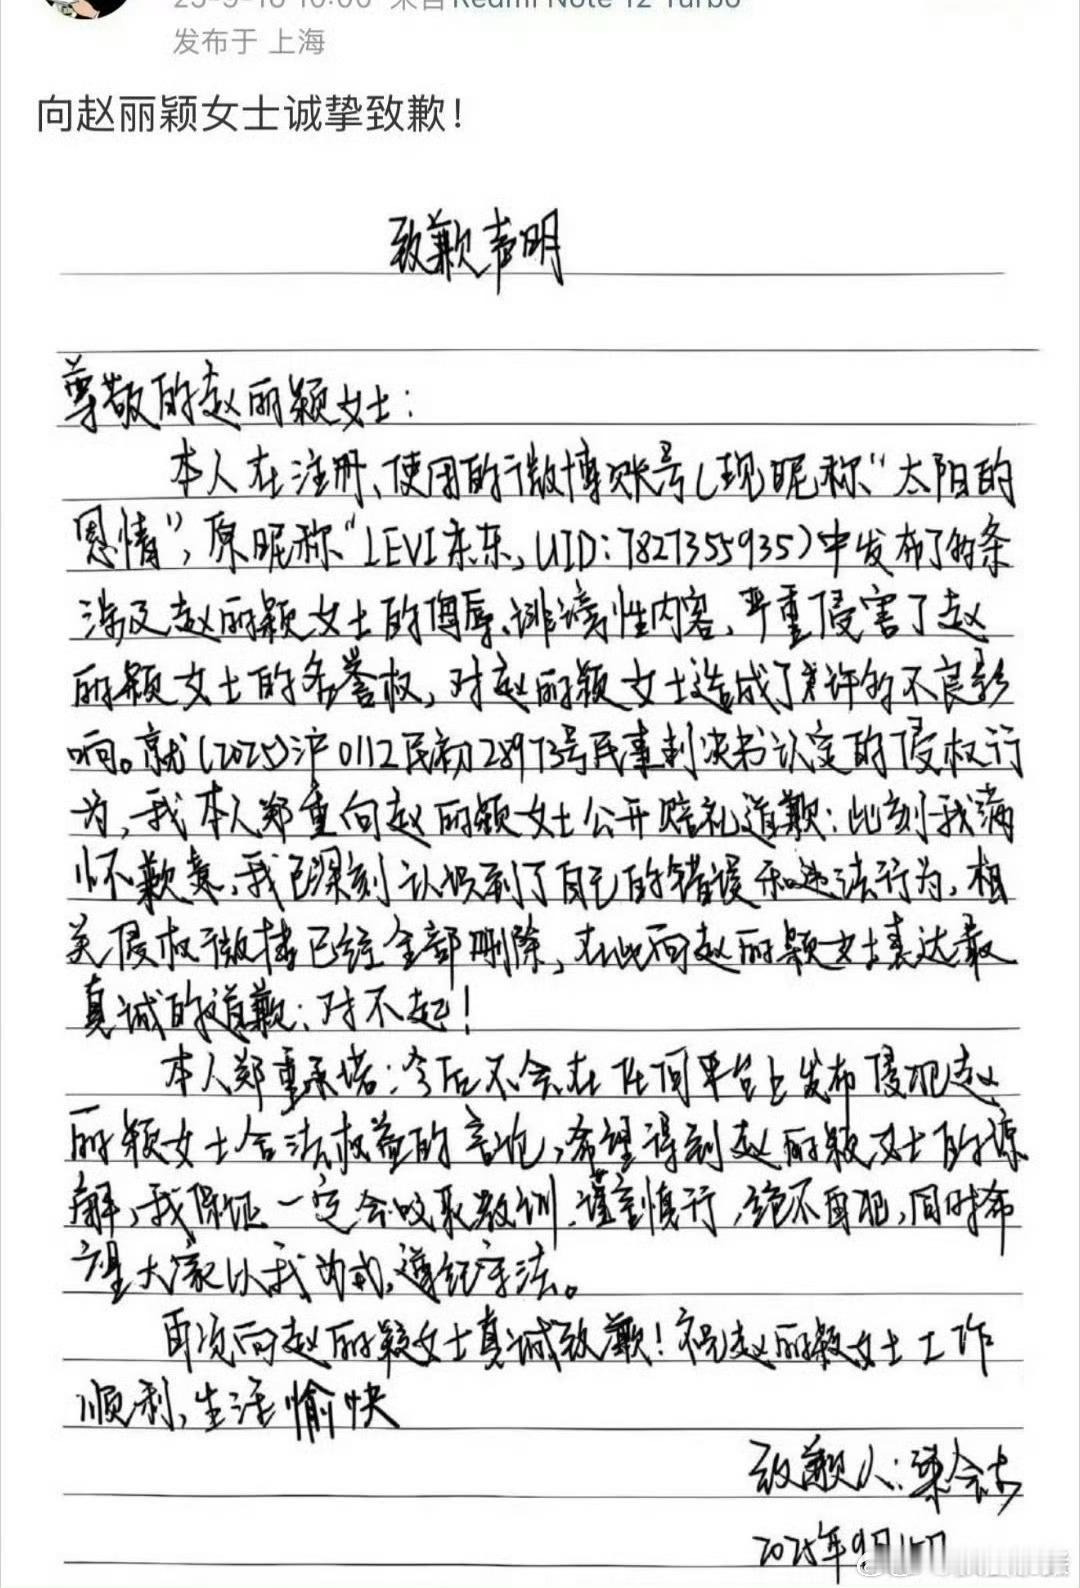 25-9-16 10:00 来自 Redmi Note 12 Turbo
发布于 上海
向赵丽颖女士诚挚致歉！
致歉声明
尊敬的赵丽颖女士：
本人在注册、使用的微博账号（现昵称“太阳的
恩情”，原昵称“LEVI京东，UID：7827355935）中发布了的条
涉及赵丽颖女士的侮辱、诽谤性内容，严重侵害了赵
丽颖女士的名誉权，对赵丽颖女士造成了允许的不良影
响。就（2025）沪0112民初28973号民事判决书认定的侵权行
为，我本人郑重向赵丽颖女士公开赔礼道歉：此刻我满
怀歉意，我已深刻认识到了自己的错误和违法行为，相
关侵权微博已经全部删除，在此向赵丽颖女士表达最
真诚的道歉：对不起！
本人郑重承诺：今后不会在任何平台上发布侵犯赵
丽颖女士合法权益的言论，希望得到赵丽颖女士的谅
解，我保证一定会吸取教训、谨言慎行，绝不再犯，同时希
望大家以我为戒，遵纪守法。
再次向赵丽颖女士真诚致歉！祝赵丽颖女士工作
顺利，生活愉快
致歉人：梁会
2025年9月15日